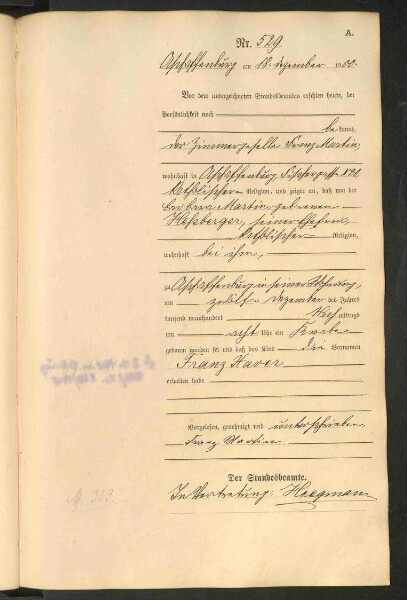 A.
Nr. 529
Aschaffenburg am 18. Dezember 1900.
Vor dem unterzeichneten Standesbeamten erschien heute, der
Persönlichkeit nach
be kannt,
der Zimmergeselle Franz Martin,
wohnhaft in Aschaffenburg, Fischergasse
katholischer Religion, und zeigte an, daß von der
Martin, geborenen
Heßberger, seiner Ehefrau,
katholischer Religion,
wohnhaft bei ihm,
zu Aschaffenburg in seiner Wohnung,
am Dezember des Jahres
tausend neunhundert Nachmittags
um acht Uhr ein Knabe
geboren worden sei und daß das Kind die Vornamen
Franz Xaver
erhalten habe.
Vorgelesen, genehmigt und unterschrieben
Franz Martin
Der Standesbeamte.
In Vertretung: